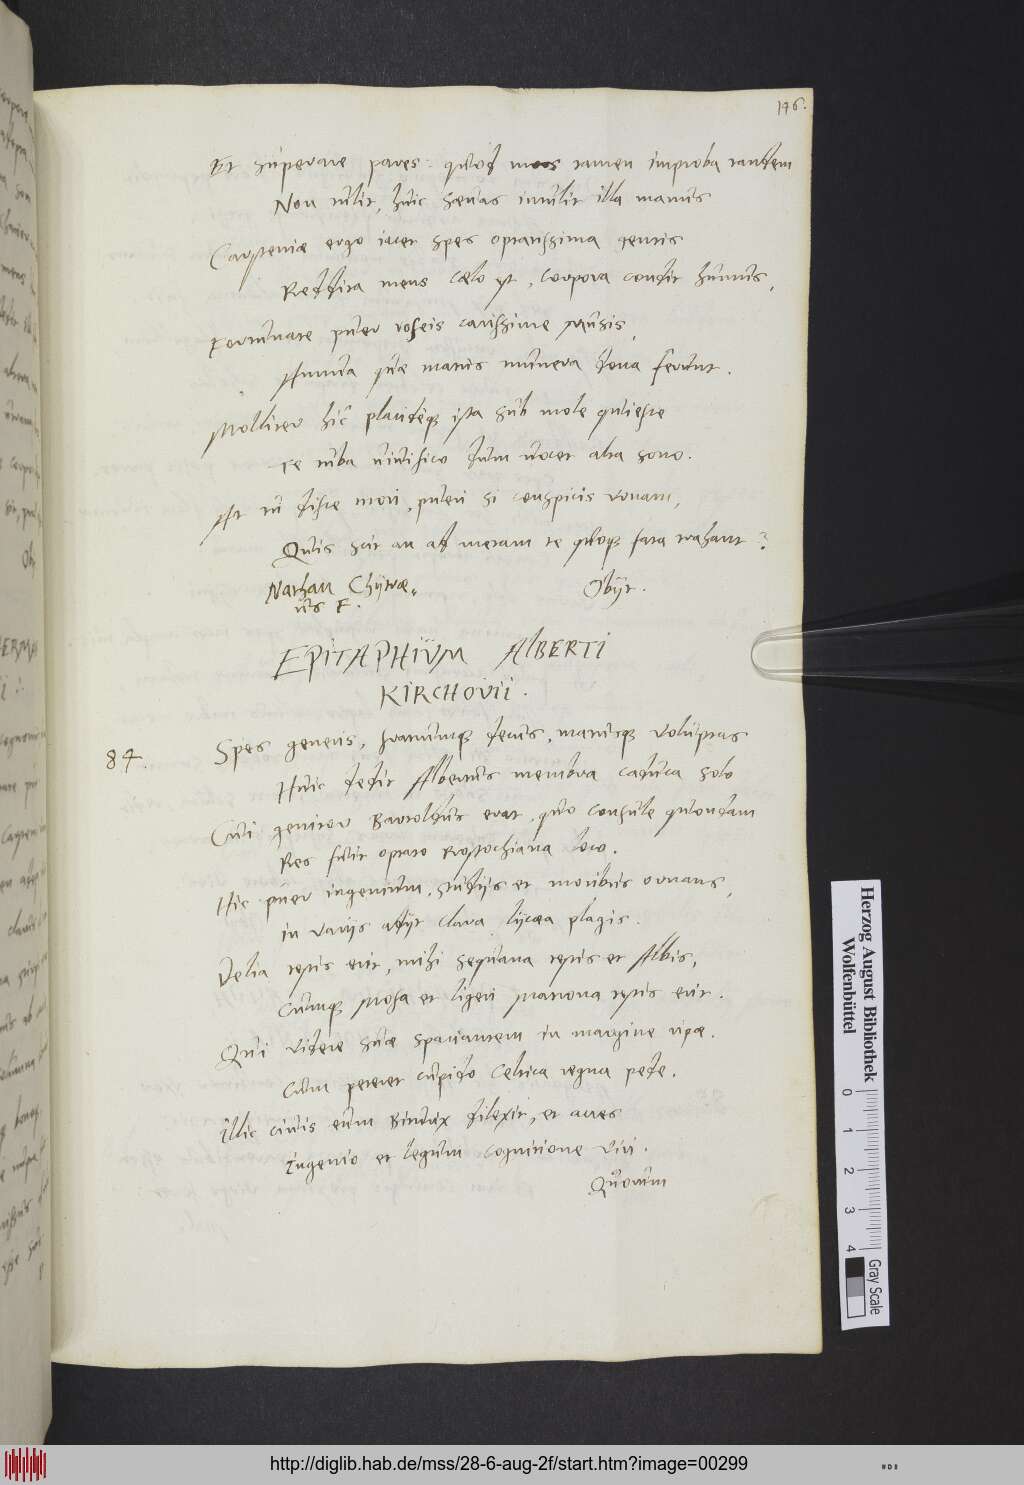 146.
Et superare pares: quod mors tamen improba tandem
Non tulit, huic saevas intulit illa manus
Carsteniae ergo iacet spes optatissima gentis
Reddita mens caelo est, corpora condit humus,
Fortunate puer roseis carissime Musis,
Munia quae matris munera dona ferunt.
Molliter hic placideq; ista sub mole quiesce
Te tuba vivifico dum vocet alta sono.
At tu disce mori, pueri si conspicis urnam,
Quis scit an ad metam te quoq; fata trahant?
Nathan Chytrae,
us F.
Obijt.
EPITAPHIUM ALBERTI
KIRCHOVII.
84.
Spes generis, fratrumq; decus, matrisq; voluptas
Huic dedit Albertus membra caduca solo
Cui genitor Bartoldus erat, quo Consule quondam
Res fuit optato Rostochiana loco.
Hic puer ingenium, studijs et moribus ornans,
in varijs adijt clara lycaea plagis.
Velia testis erit, mihi Sequana testis et Albis,
Cumq; Mosa et ligeri Matrona testis erit.
Qui videre suae spaciantem in margine ripae.
Cum peteret cupido Celtica regna pede.
Illic civis eum Biturix dilexit, et acres
Ingenio et legum cognitione viri.
Quorum
Herzog August Bibliothek
Wolfenbüttel
0 1 2 3 4
Gray Scale
http://diglib.hab.de/mss/28-6-aug-2f/start.htm?image=00299